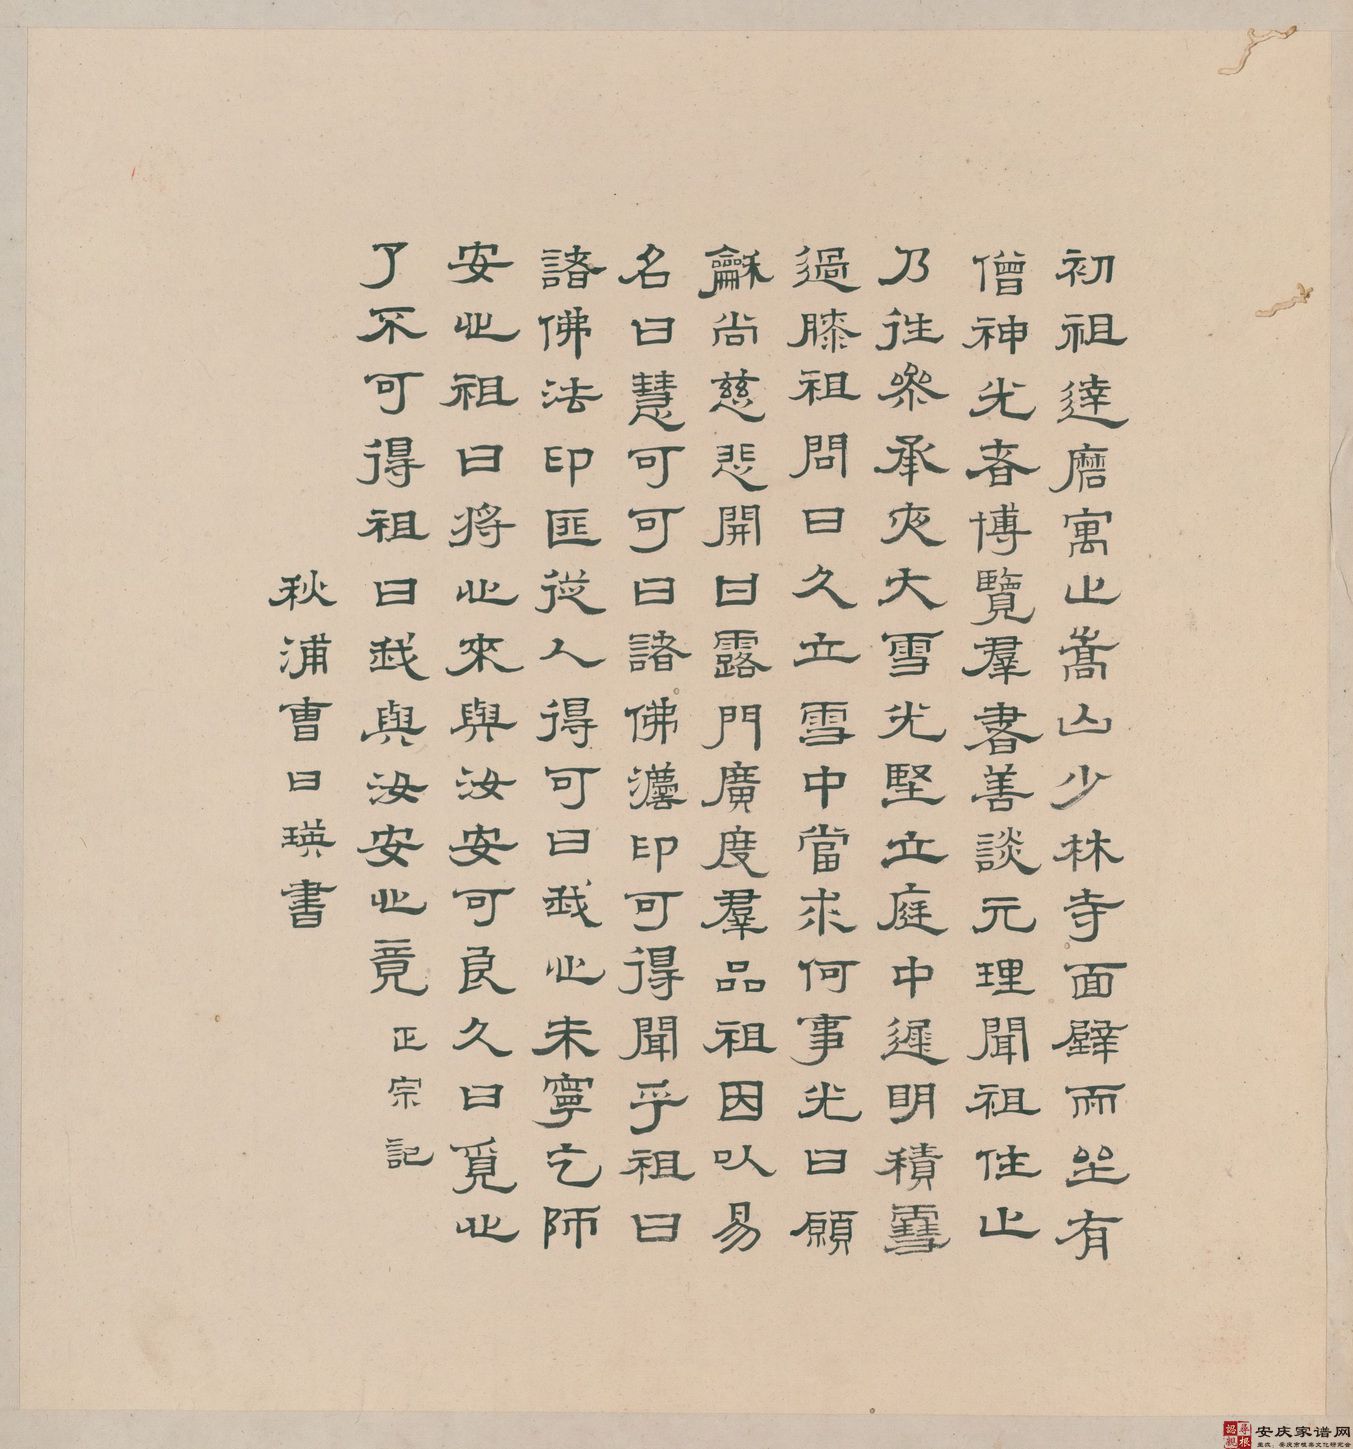 初祖達磨寓止嵩山少林寺面壁而坐有
僧神光者博覽羣書善談元理聞祖住止
乃往參承夜大雪光堅立庭中遲明積雪
過膝祖問曰久立雪中當求何事光曰願
龢尚慈悲開甘露門廣度羣品祖因以易
名曰慧可可曰諸佛灋印可得聞乎祖曰
諸佛法印匪從人得可曰我心未寧乞師
安心祖曰將心來與汝安可良久曰覓心
了不可得祖曰我與汝安心竟 正宗記
秋浦曹日瑛書
安庆家谱网